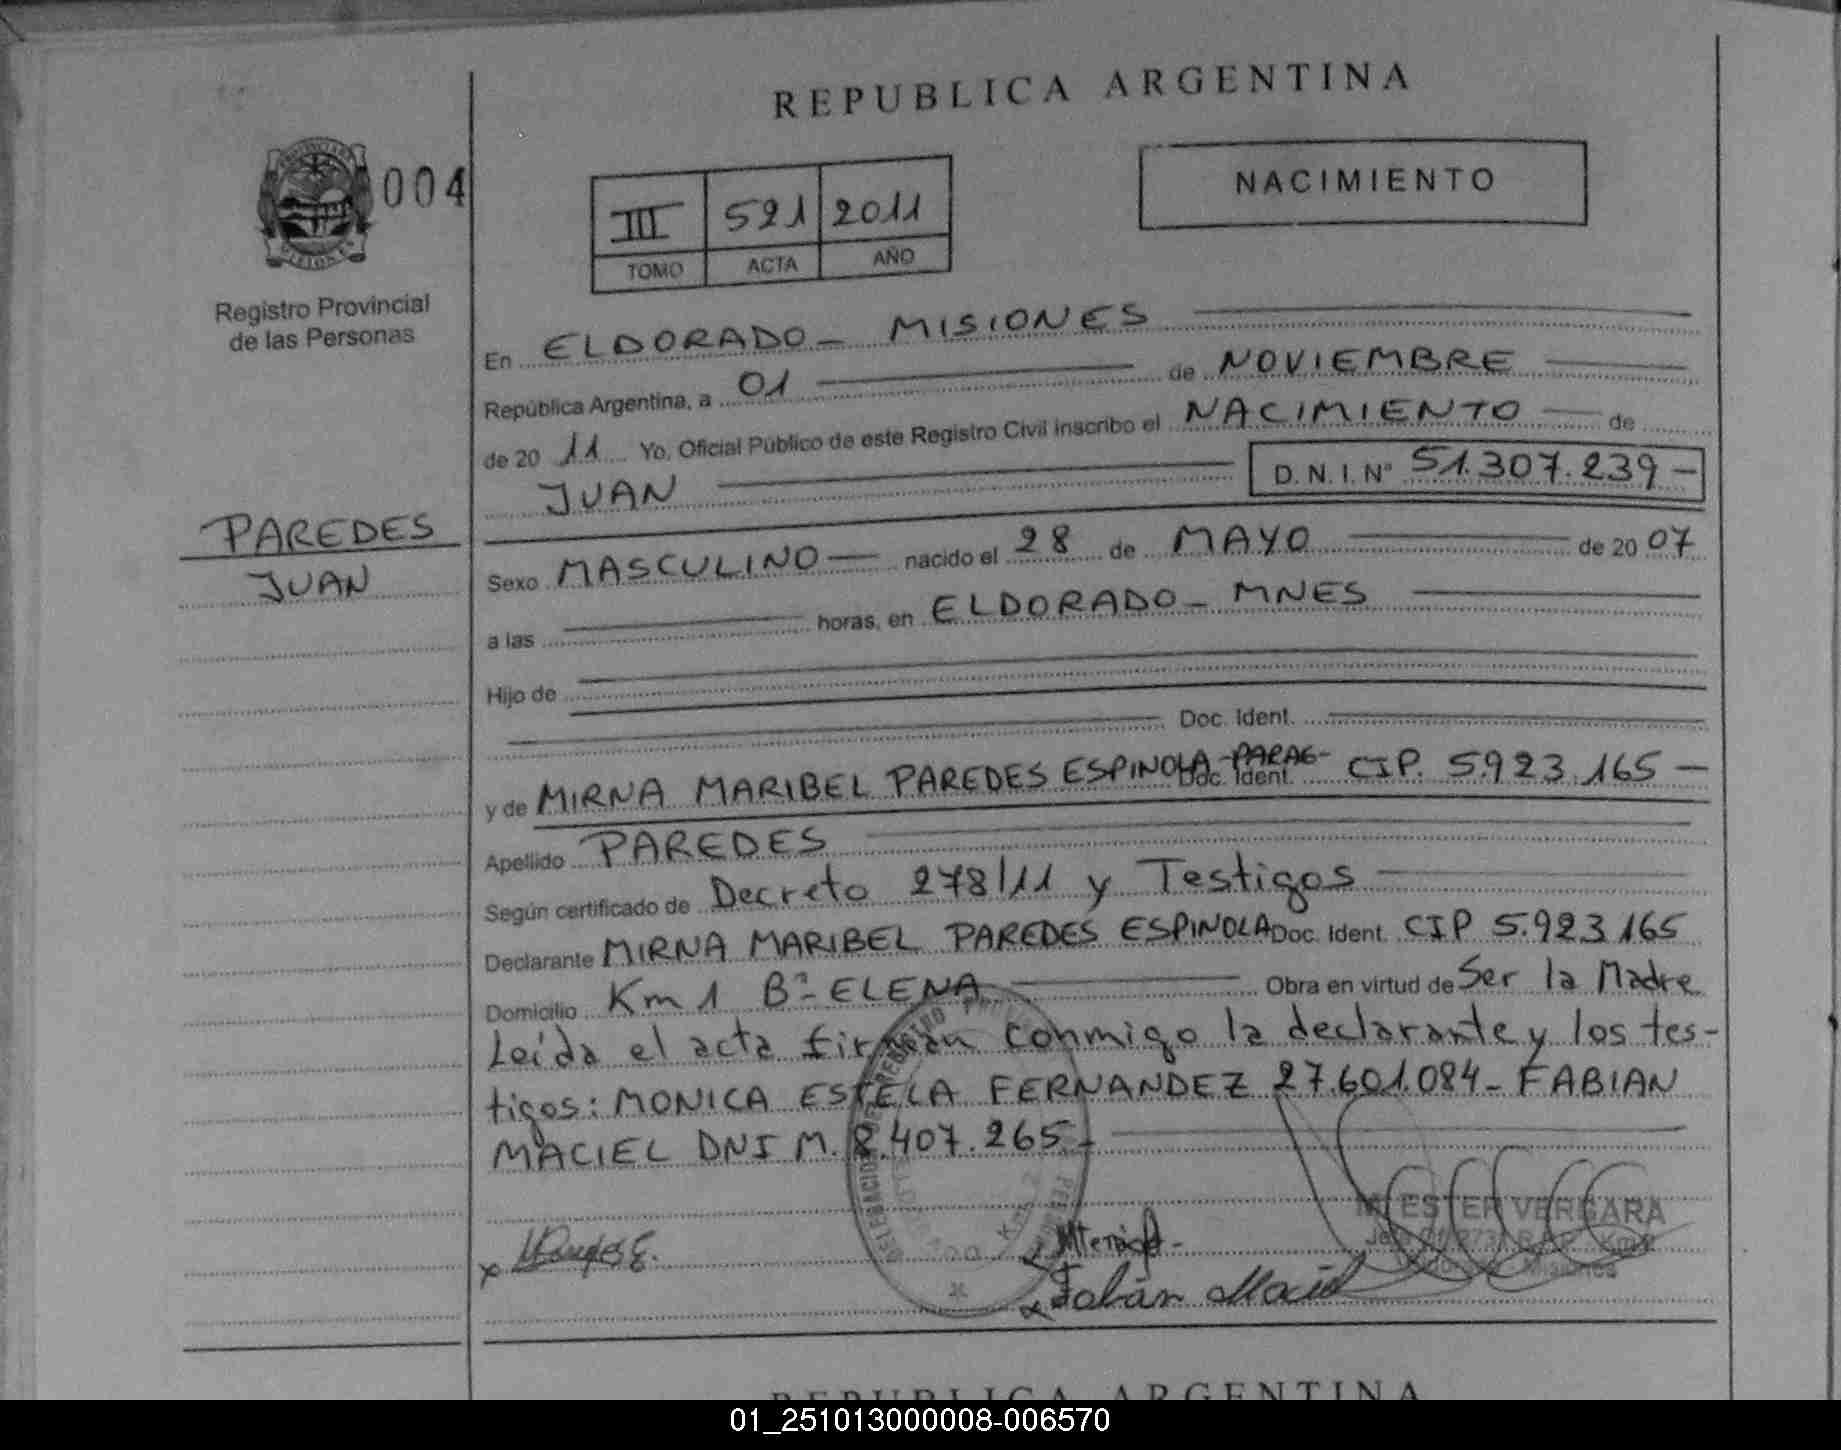 REPUBLICA ARGENTINA
004
NACIMIENTO
III 521 2011
TOMO ACTA AÑO
Registro Provincial
de las Personas
En ELDORADO - MISIONES
República Argentina, a 01 de NOVIEMBRE
de 20 11 Yo, Oficial Público de este Registro Civil inscribo el NACIMIENTO de
JUAN D.N.I.Nº 51.307.239-
PAREDES
JUAN
Sexo MASCULINO nacido el 28 de MAYO de 20 07
a las horas, en ELDORADO - MNES
Hijo de
Doc. Ident.
y de MIRNA MARIBEL PAREDES ESPINOLA -PARAG- Doc. Ident. CIP. 5.923.165-
Apellido PAREDES
Según certificado de Decreto 278/11 y Testigos
Declarante MIRNA MARIBEL PAREDES ESPINOLA Doc. Ident. CIP 5.923.165
Domicilio Km 1 Bº- ELENA Obra en virtud de Ser la Madre
Leída el acta firman conmigo la declarante y los tes-
tigos: MONICA ESTELA FERNANDEZ 27.601.084- FABIAN
MACIEL DNI M. 8.407.265-
ESTER VERGARA
Fabián Maciel
REPUBLICA ARGENTINA
01_251013000008-006570